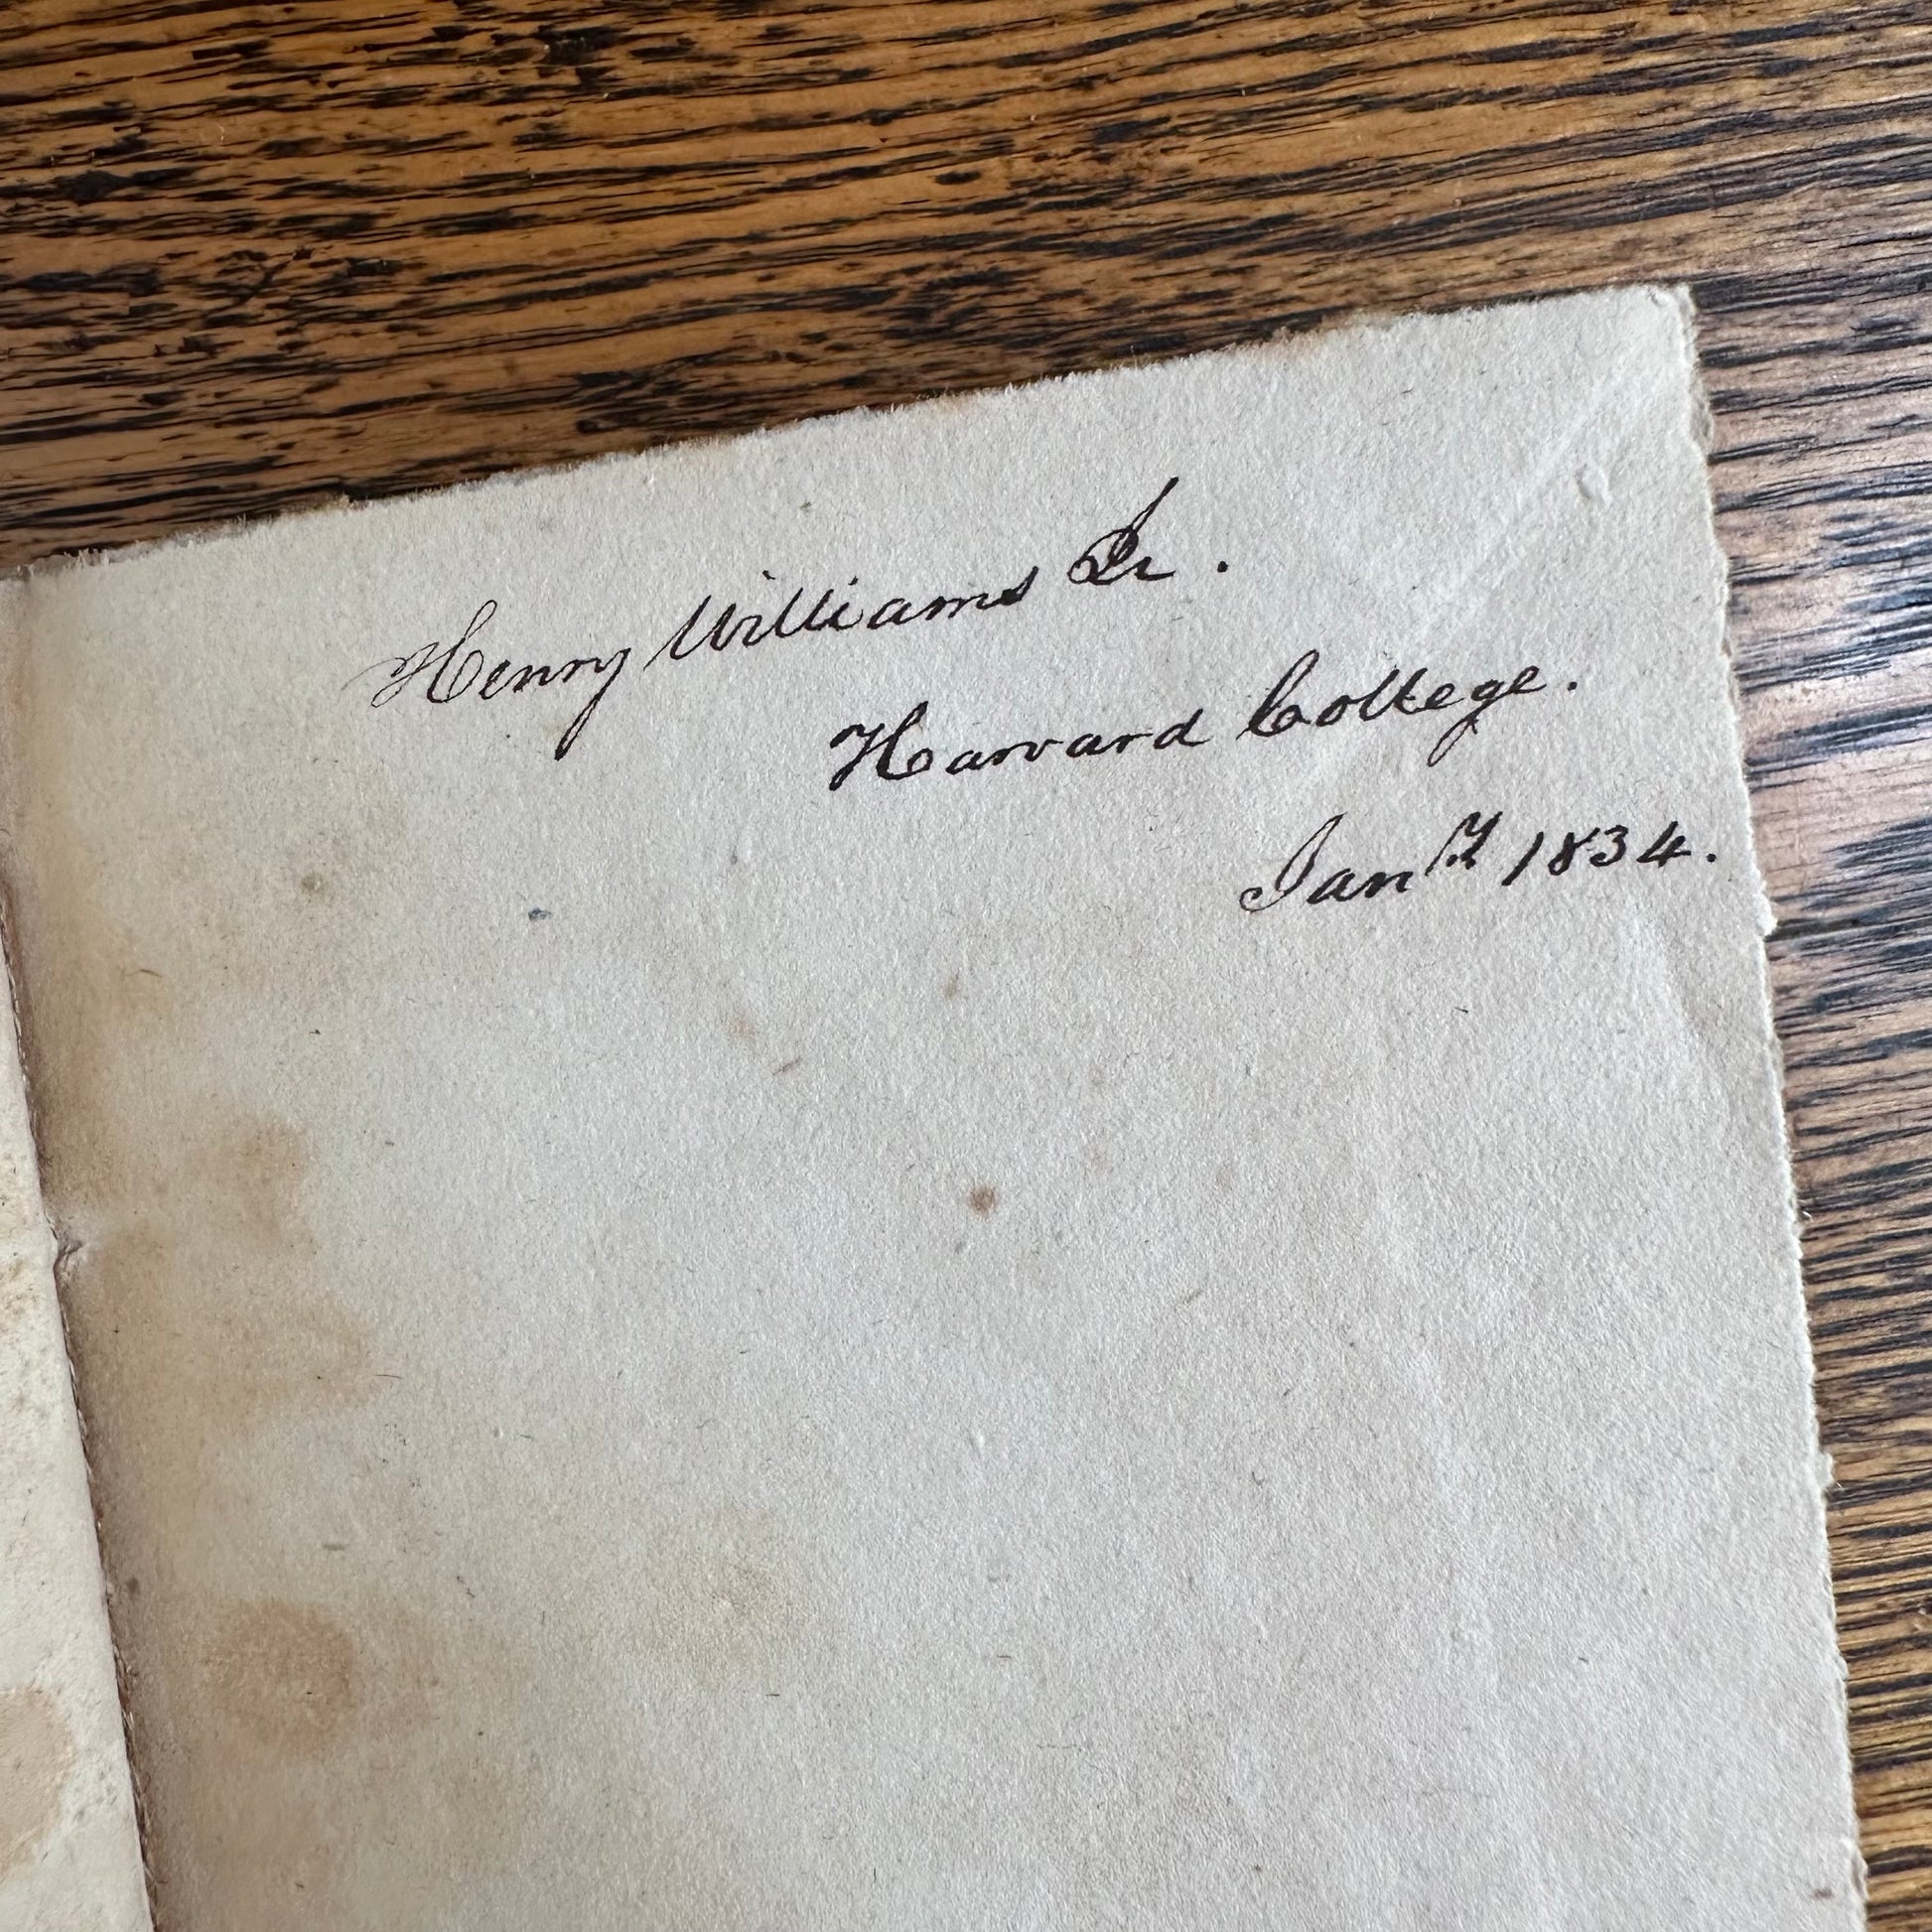 Henry Williams Jr.
Harvard College.
Jany 1834.